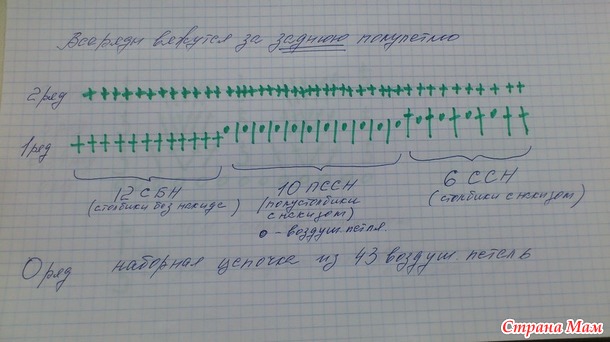 Все ряды вяжутся за заднюю полупетлю
2 ряд
1 ряд
12 СБН 10 ПССН 6 ССН
(столбики без накида) (полустолбики (столбики с накидом)
с накидом)
о - воздуш. петля.
0 ряд наборная цепочка из 43 воздуш. петель
Страна Мам